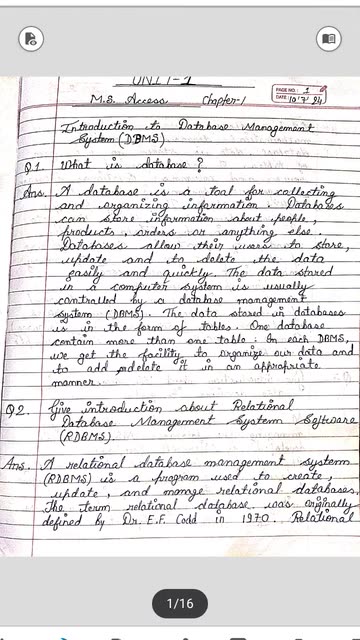 UNIT-1
PAGE NO.: 1
DATE 10'7'24
M.S. Access Chapter-1
Introduction to Database Management
System (DBMS)
Q1. What is database?
Ans. A database is a tool for collecting
and organizing information. Databases
can store information about people,
products, orders or anything else.
Databases allow their users to store,
update and to delete the data
easily and quickly. The data stored
in a computer system is usually
controlled by a database management
system (DBMS). The data stored in databases
is in the form of tables. One database
contain more than one table. In each DBMS,
we get the facility to organize our data and
to add delete it in an appropriate
manner.
Q2. Give introduction about Relational
Database Management System Software
(RDBMS).
Ans. A relational database management system
(RDBMS) is a program used to create,
update, and manage relational databases.
The term relational database was originally
defined by Dr. E.F. Codd in 1970. Relational
1/16